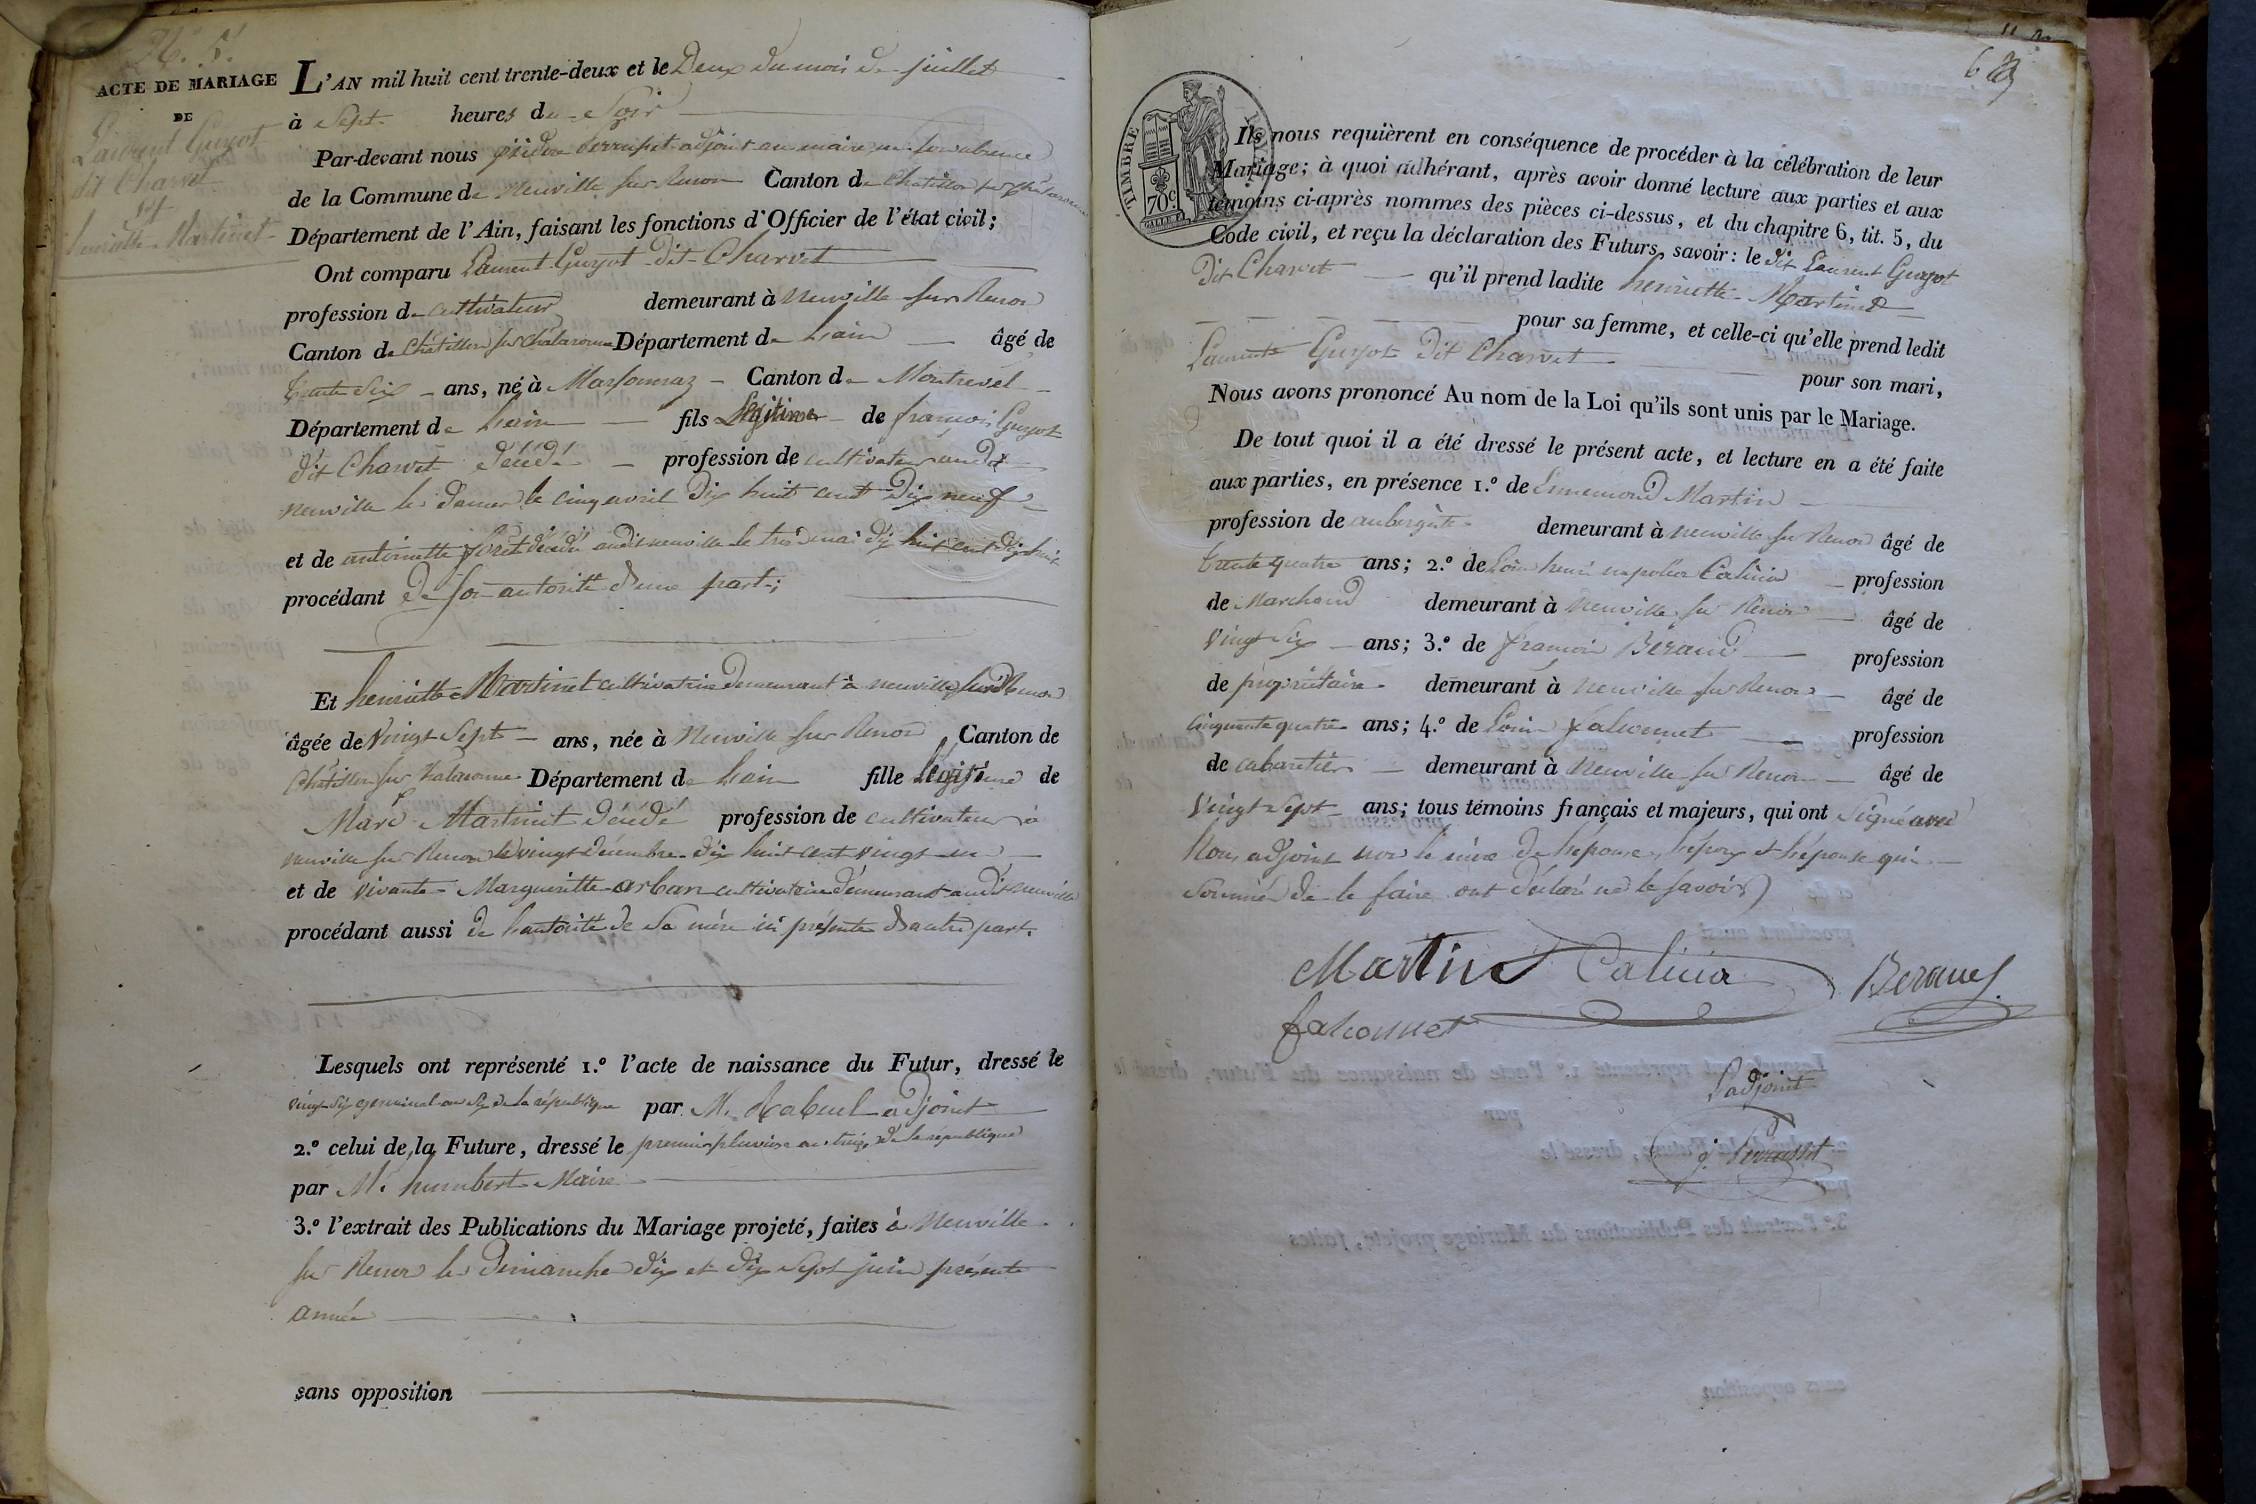 N.º 5.
ACTE DE MARIAGE
DE
Laurent Guyot
dit Charvet
et
henriette Martinet
L'AN mil huit cent trente-deux et le Deux du mois de juillet
à Sept heures du Soir
Par-devant nous adjoint au maire en son absence
de la Commune de Neuville sur Renon Canton de Chatillon sur Chalaronne
Département de l'Ain, faisant les fonctions d'Officier de l'état civil;
Ont comparu Laurent Guyot dit Charvet
profession de cultivateur demeurant à Neuville sur Renon
Canton de Châtillon sur Chalaronne Département de Lain âgé de
trente Six ans, né à Marsonnaz Canton de Montrevel
Département de Lain fils Légitime de françois Guyot
dit Charvet décédé profession de cultivateur audit
neuville le cinq avril dix huit cent dix neuf
et de antoinette décédé audit neuville le trois mai dix huit cent dix huit
procédant de son autorité d'une part;
Et henriette Martinet cultivatrice demeurant à neuville sur Renon
âgée de Vingt Sept ans, née à Neuville sur Renon Canton de
Châtillon sur Chalaronne Département de Lain fille Légitime de
Marc Martinet décédé profession de cultivateur à
neuville sur Renon le vingt décembre dix huit cent vingt un
et de vivante Margueritte arban cultivatrice demeurant audit neuville
procédant aussi de l'autorité de Sa mère ici présente d'autre part.
Lesquels ont représenté 1.º l'acte de naissance du Futur, dressé le
vingt Six germinal an Six de la république par M. Rabuel adjoint
2.º celui de la Future, dressé le premier pluviose an treize de la république
par M. humbert Maire
3.º l'extrait des Publications du Mariage projeté, faites à Neuville
sur Renon les Dimanche dix et dix Sept juin présente
année
sans opposition
TIMBRE
70c
Ils nous requièrent en conséquence de procéder à la célébration de leur
Mariage; à quoi adhérant, après avoir donné lecture aux parties et aux
témoins ci-après nommes des pièces ci-dessus, et du chapitre 6, tit. 5, du
Code civil, et reçu la déclaration des Futurs, savoir: le dit Laurent Guyot
dit Charvet qu'il prend ladite henriette Martinet
pour sa femme, et celle-ci qu'elle prend ledit
Laurent Guyot dit Charvet pour son mari,
Nous avons prononcé Au nom de la Loi qu'ils sont unis par le Mariage.
De tout quoi il a été dressé le présent acte, et lecture en a été faite
aux parties, en présence 1.º de Ennemond Martin
profession de aubergiste demeurant à neuville sur Renon âgé de
trente quatre ans; 2.º de Loüis henri napoléon Calicia profession
de Marchand demeurant à Neuville sur Renon âgé de
Vingt Six ans; 3.º de françois Béraud profession
de propriétaire demeurant à Neuville sur Renon âgé de
cinquante quatre ans; 4.º de Loüis falconnet profession
de cabaretier demeurant à Neuville sur Renon âgé de
Vingt Sept ans; tous témoins français et majeurs, qui ont Signé avec
Nous adjoint non la mère de l'épouse, l'époux et l'épouse qui
Sommés de le faire ont déclaré ne le savoir
Martin Calicia Beraud
falconnet
L'adjoint